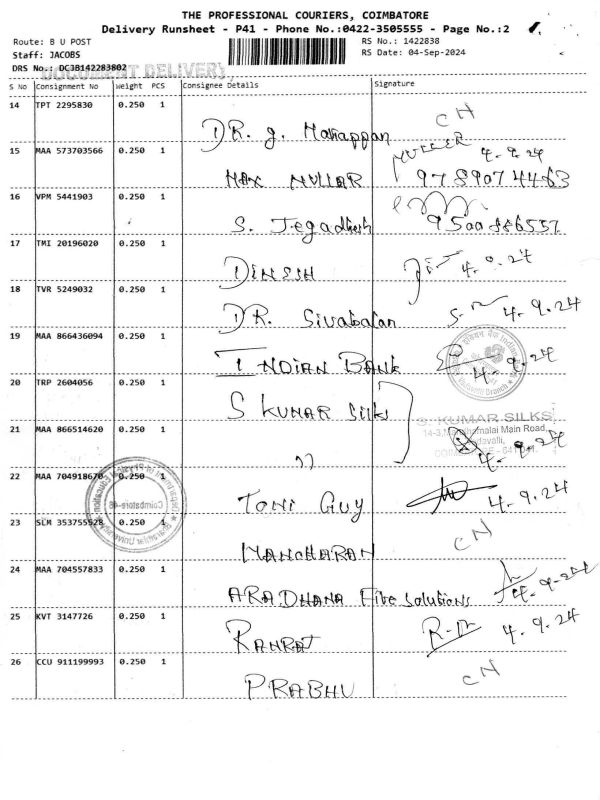 THE PROFESSIONAL COURIERS, COIMBATORE
Delivery Runsheet - P41 - Phone No.:0422-3505555 - Page No.:2
Route: B U POST
RS No.: 1422838
Staff: JACOBS
RS Date: 04-Sep-2024
DOCUMENT DELIVERY
DRS No.: DC3B142283802
S No Consignment No Weight PCS Consignee Details Signature
14 TPT 2295830 0.250 1 DR. g. CN
15 MAA 573703566 0.250 1 MAX MULLAR MULLER 4.9.24
9789074463
16 VPM 5441903 0.250 1 S. Jegadhesh 9500886557
17 TMI 20196020 0.250 1 DINESH 4.9.24
18 TVR 5249032 0.250 1 DR. Sivabalan 4.9.24
19 MAA 866436094 0.250 1 INDIAN BANK 4.9.24
20 TRP 2604056 0.250 1 S KUMAR Silks
S. KUMAR SILKS
Main Road,
21 MAA 866514620 0.250 1 " 4.9.24
22 MAA 704918670 0.250 1 TONI GUY 4.9.24
Coimbatore-46
23 SLM 353755528 0.250 1 MANOHARAN CN
24 MAA 704557833 0.250 1 ARADHANA Fire Solutions 4.9.24
25 KVT 3147726 0.250 1 RAMRAJ 4.9.24
26 CCU 911199993 0.250 1 PRABHU CN